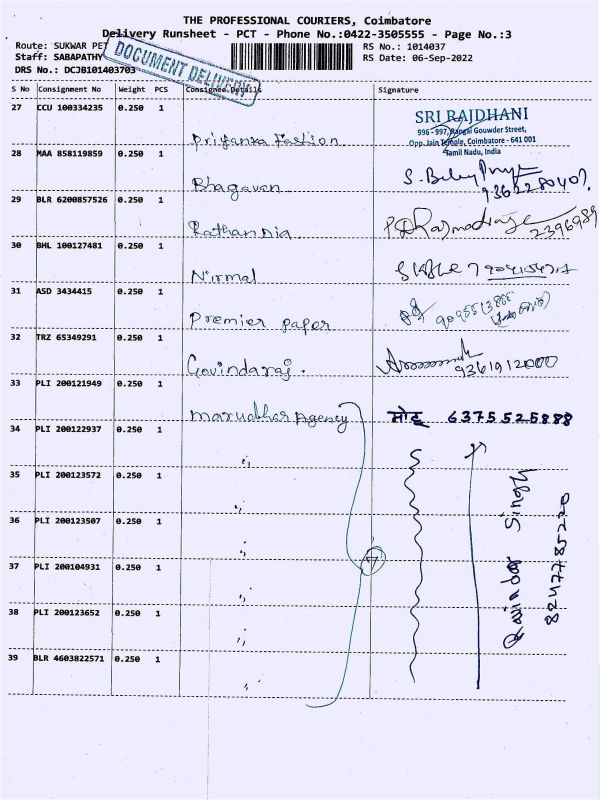 THE PROFESSIONAL COURIERS, Coimbatore
Delivery Runsheet - PCT - Phone No.:0422-3505555 - Page No.:3
Route: SUKWAR PET
RS No.: 1014037
Staff: SABAPATHY
RS Date: 06-Sep-2022
DRS No.: DCJB101403703
DOCUMENT DELIVERY
S No Consignment No Weight PCS Consignee Details Signature
27 CCU 100334235 0.250 1
Priyanka Fashion
SRI RAJDHANI
996 - 997, Rangai Gouwder Street,
Opp. Jain Temple, Coimbatore - 641 001
Tamil Nadu, India
28 MAA 858119859 0.250 1
Bhagavan
29 BLR 6200857526 0.250 1
2396989
30 BHL 100127481 0.250 1
Nirmal
31 ASD 3434415 0.250 1
Premier paper
32 TRZ 65349291 0.250 1
Govindaraj.
9361912000
33 PLI 200121949 0.250 1
Marudhar Agency
मोटू 6375525888
34 PLI 200122937 0.250 1
",
35 PLI 200123572 0.250 1
",
36 PLI 200123507 0.250 1
",
37 PLI 200104931 0.250 1
",
38 PLI 200123652 0.250 1
",
39 BLR 4603822571 0.250 1
",
Singh